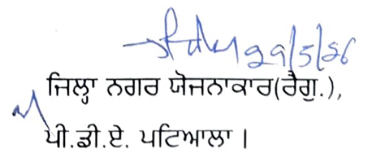 29/5/26
ਜਿਲ੍ਹਾ ਨਗਰ ਯੋਜਨਾਕਾਰ(ਰੈਗੂ.),
ਪੀ.ਡੀ.ਏ. ਪਟਿਆਲਾ ।